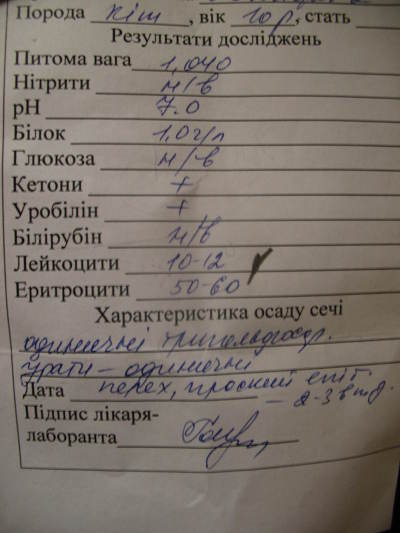 Порода кіт, вік 10 р, стать
Результати досліджень
Питома вага 1,040
Нітрити н/в
pH 7.0
Білок 1,0 г/л
Глюкоза н/в
Кетони +
Уробілін +
Білірубін н/в
Лейкоцити 10-12
Еритроцити 50-60
Характеристика осаду сечі
одиничні
урати - одиничні
Дата перех, плоский епіт.
- 2-3 в п.з.
Підпис лікаря-
лаборанта